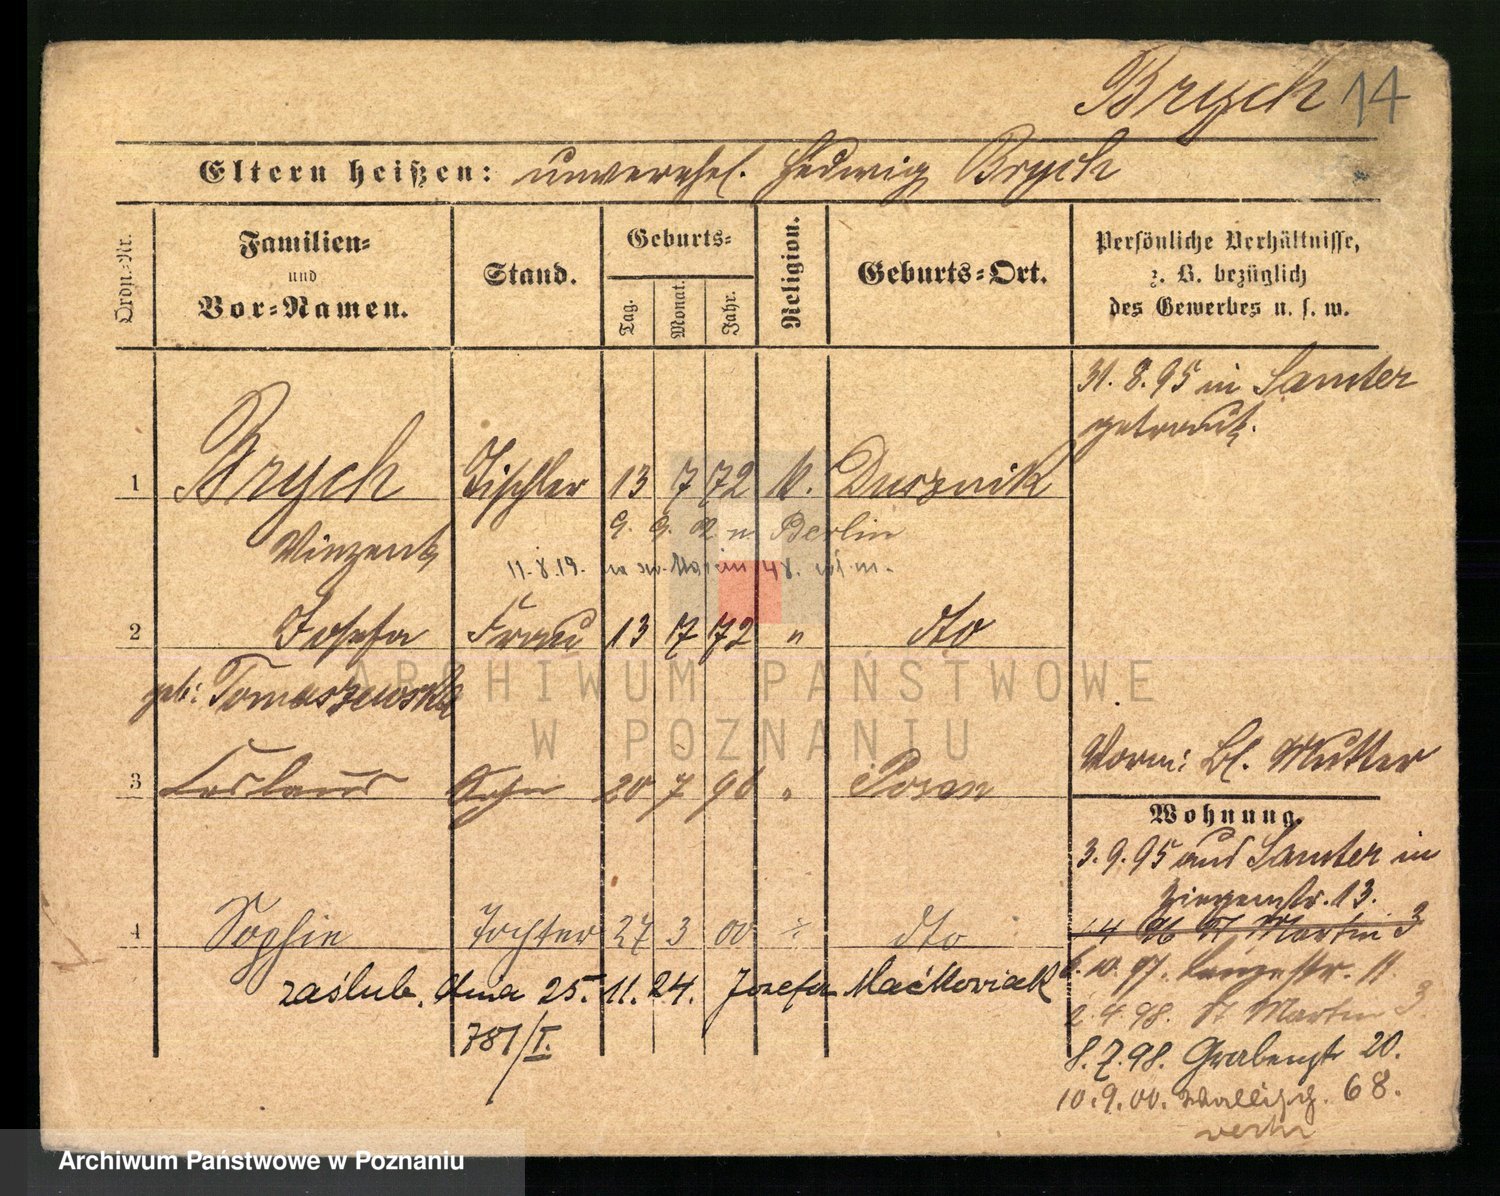 Brych 14
Eltern heißen: unverehel. Hedwig Brych
Ordn.-Nr.
Familien-
und
Vor-Namen.
Stand.
Geburts-
Tag.
Monat.
Jahr.
Religion.
Geburts-Ort.
Persönliche Verhältnisse,
z. B. bezüglich
des Gewerbes u. s. w.
31. 8. 95 in Samter
getraut.
1 Brych Tischler 13 7 72 k. Dusznik
Vinzent
9. 9. n. Berlin
11.8.19.
2 Josefa Frau 13 7 72 " dto
geb: Tomaszewska
3 Sohn 20 7 96 " Posen
Vorm: Bl. Mutter
Wohnung.
3. 9. 95 aus Samter in
Ziegenstr. 13.
1 4 96 St Martin 3
4 Sophie Tochter 27 3 00 " dto
6. 10. 97. 11.
zaślub. dnia 25. 11. 24. Józefa Maćkowiak
2. 4. 98. St Martin 3.
781/I.
8. 7. 98. Grabenstr 20.
10. 9. 00. Wallisch. 68.
ARCHIWUM PAŃSTWOWE
W POZNANIU
Archiwum Państwowe w Poznaniu